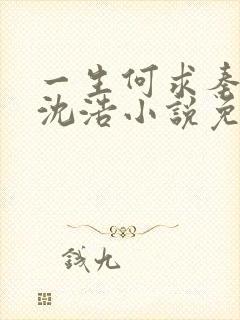 一生何求秦
沈浩小說免
錢九